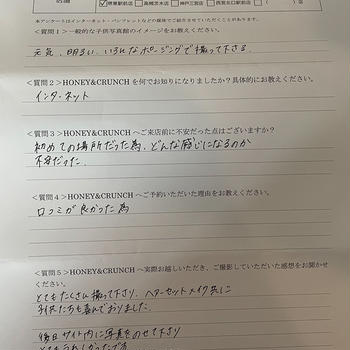 堺東駅前店 高槻茨木店 神戸三宮店 西宮北口駅前店
本アンケートはインターネット・パンフレットなどの媒体でご紹介させていただくことがあります。
<質問1>一般的な子供写真館のイメージをお教えください。
元気、明るい、いろんなポージングで撮って下さる
<質問2>HONEY&CRUNCHを何でお知りになりましたか?具体的にお教えください。
インターネット
<質問3>HONEY&CRUNCHへご来店前に不安だった点はございますか?
初めての場所だった為、どんな感じになるのか
不安だった。
<質問4>HONEY&CRUNCHへご予約いただいた理由をお教えください。
口コミが良かった為
<質問5>HONEY&CRUNCHへ実際お越しいただき、ご撮影していただいた感想をお聞かせ
ください。
とてもたくさん撮って下さり、ヘアーセットメイク共に
子供たちも喜んでおりました。
後日サイト内に写真をのせて下さり
とてもうれしかったです